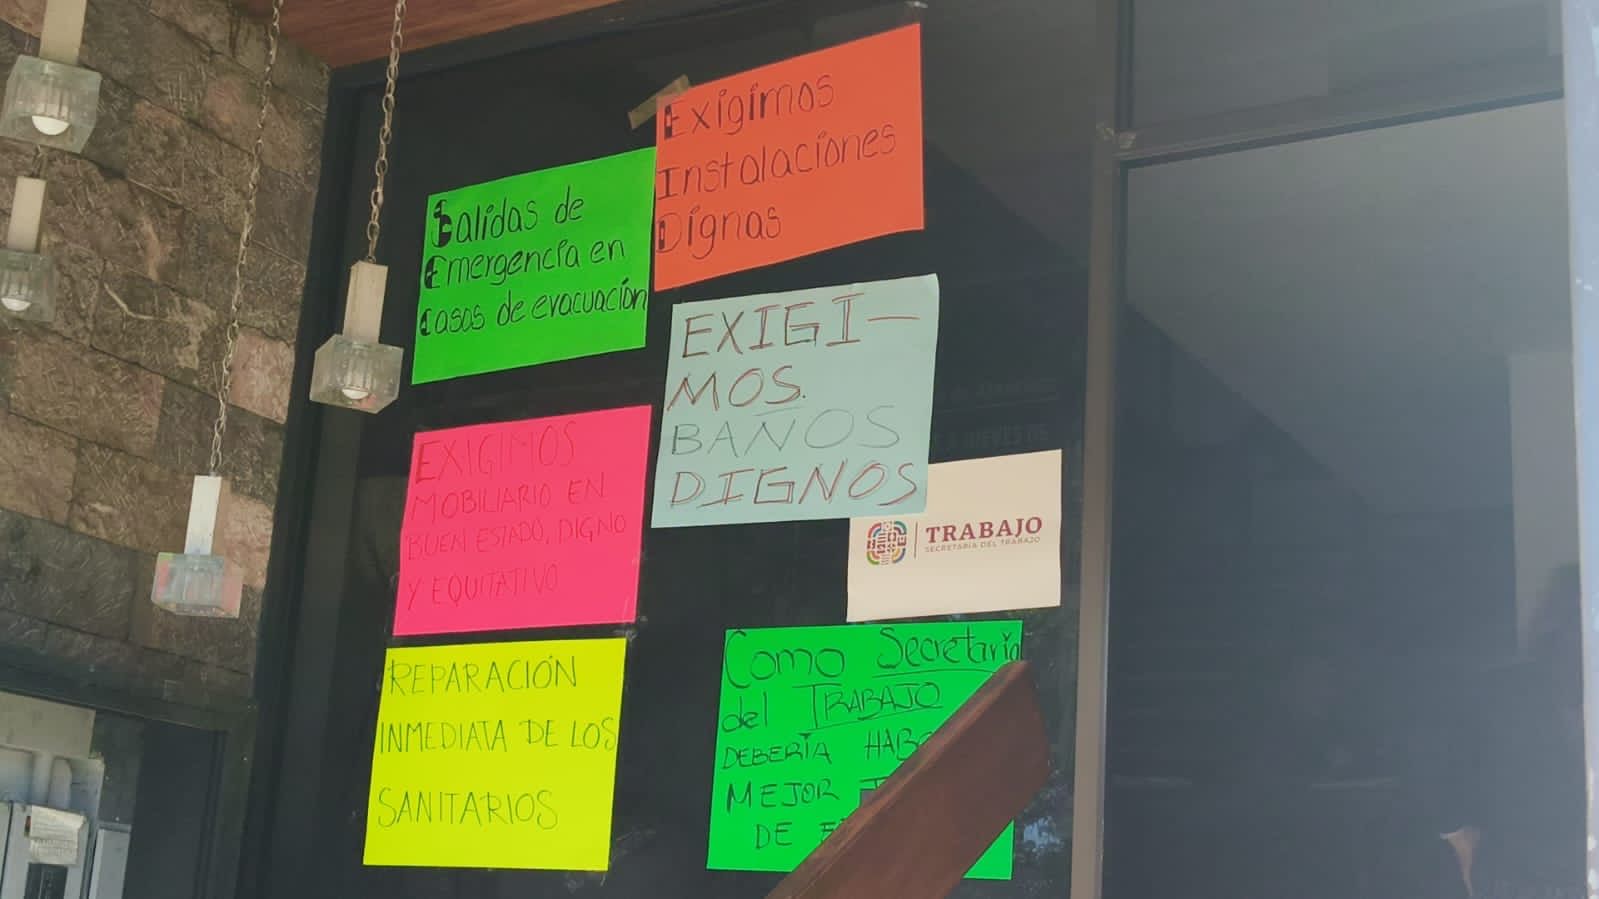 Exigimos
Instalaciones
Dignas
Salidas de
Emergencia en
Casos de evacuación
EXIGI-
MOS.
BAÑOS
DIGNOS
EXIGIMOS
MOBILIARIO EN
BUEN ESTADO, DIGNO
Y EQUITATIVO
TRABAJO
SECRETARÍA DEL TRABAJO
REPARACIÓN
INMEDIATA DE LOS
SANITARIOS
Como Secretaria
del TRABAJO
DEBERÍA
MEJOR
DE